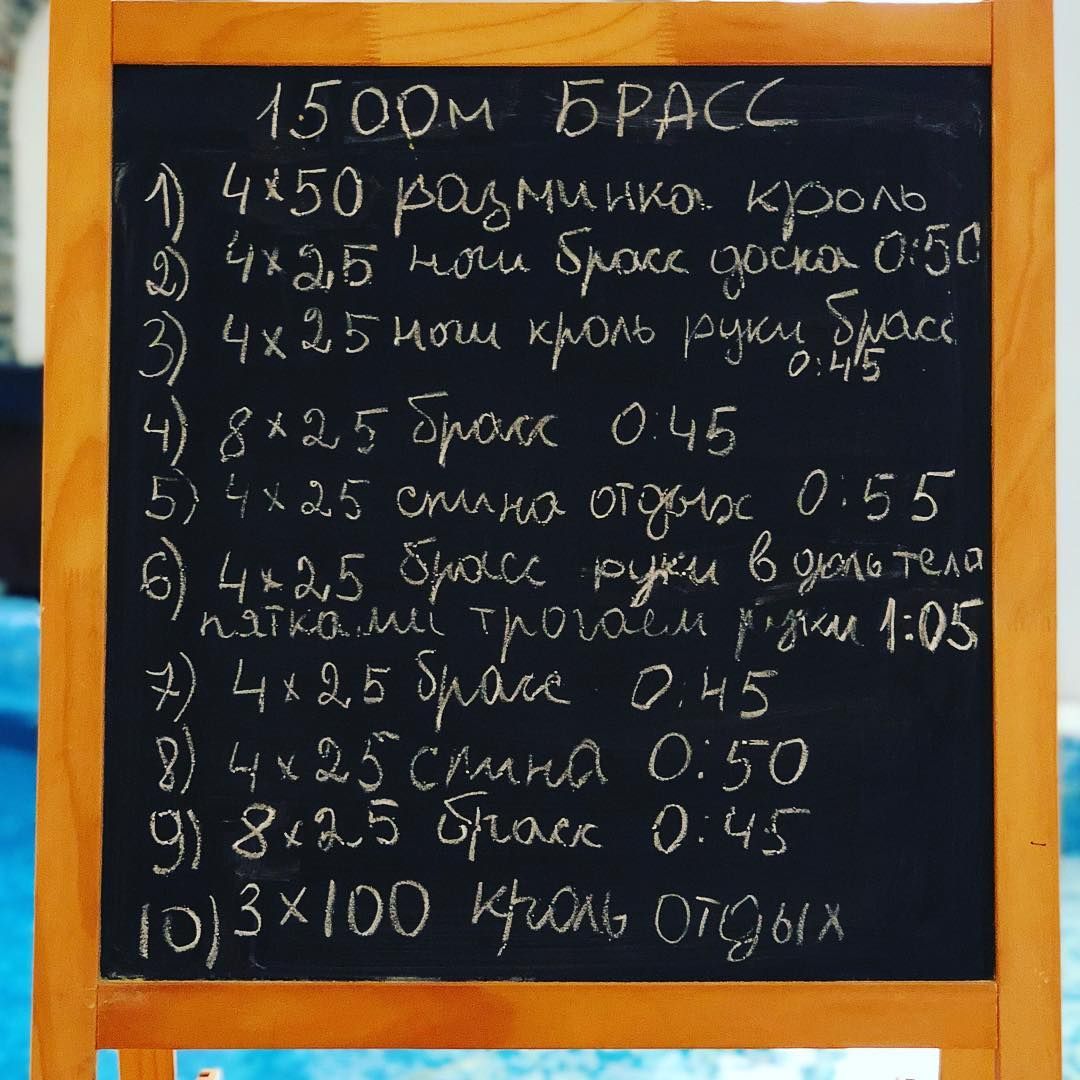 1500м БРАСС
1) 4×50 разминка кроль
2) 4×25 ноги брасс доска 0:50
3) 4×25 ноги кроль руки брасс
0:45
4) 8×25 брасс 0:45
5) 4×25 спина отдых 0:55
6) 4×25 брасс руки в доль тела
пятками трогаем руки 1:05
7) 4×25 брасс 0:45
8) 4×25 спина 0:50
9) 8×25 брасс 0:45
10) 3×100 кроль отдых